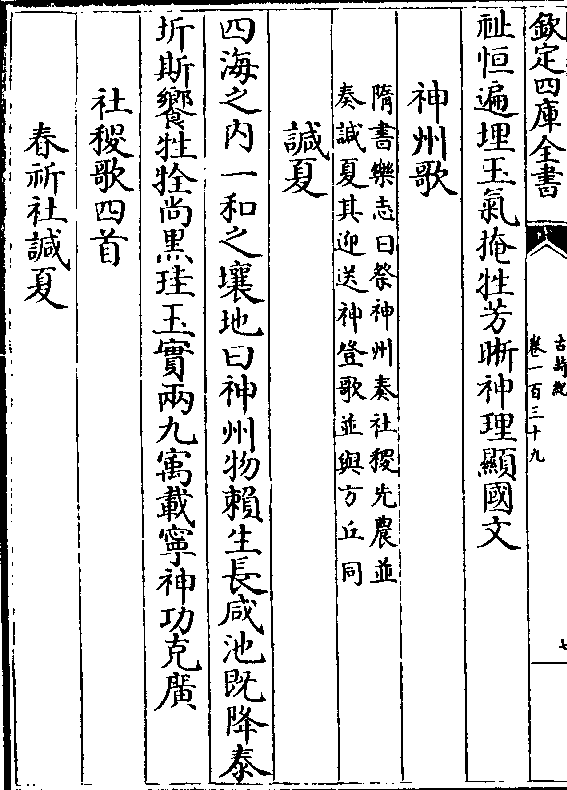 欽定四庫全書
古詩紀
卷一百三十九
七
祉恒遍埋玉氣掩牲芳晰神理顯國文
神州歌
隋書樂志曰祭神州奏社稷先農並
奏諴夏其迎送神登歌並與方丘同
諴夏
四海之内一和之壤地曰神州物賴生長咸池既降泰
圻斯饗牲牷尚黑珪玉實兩九㝢載寧神功克廣
社稷歌四首
春祈社諴夏